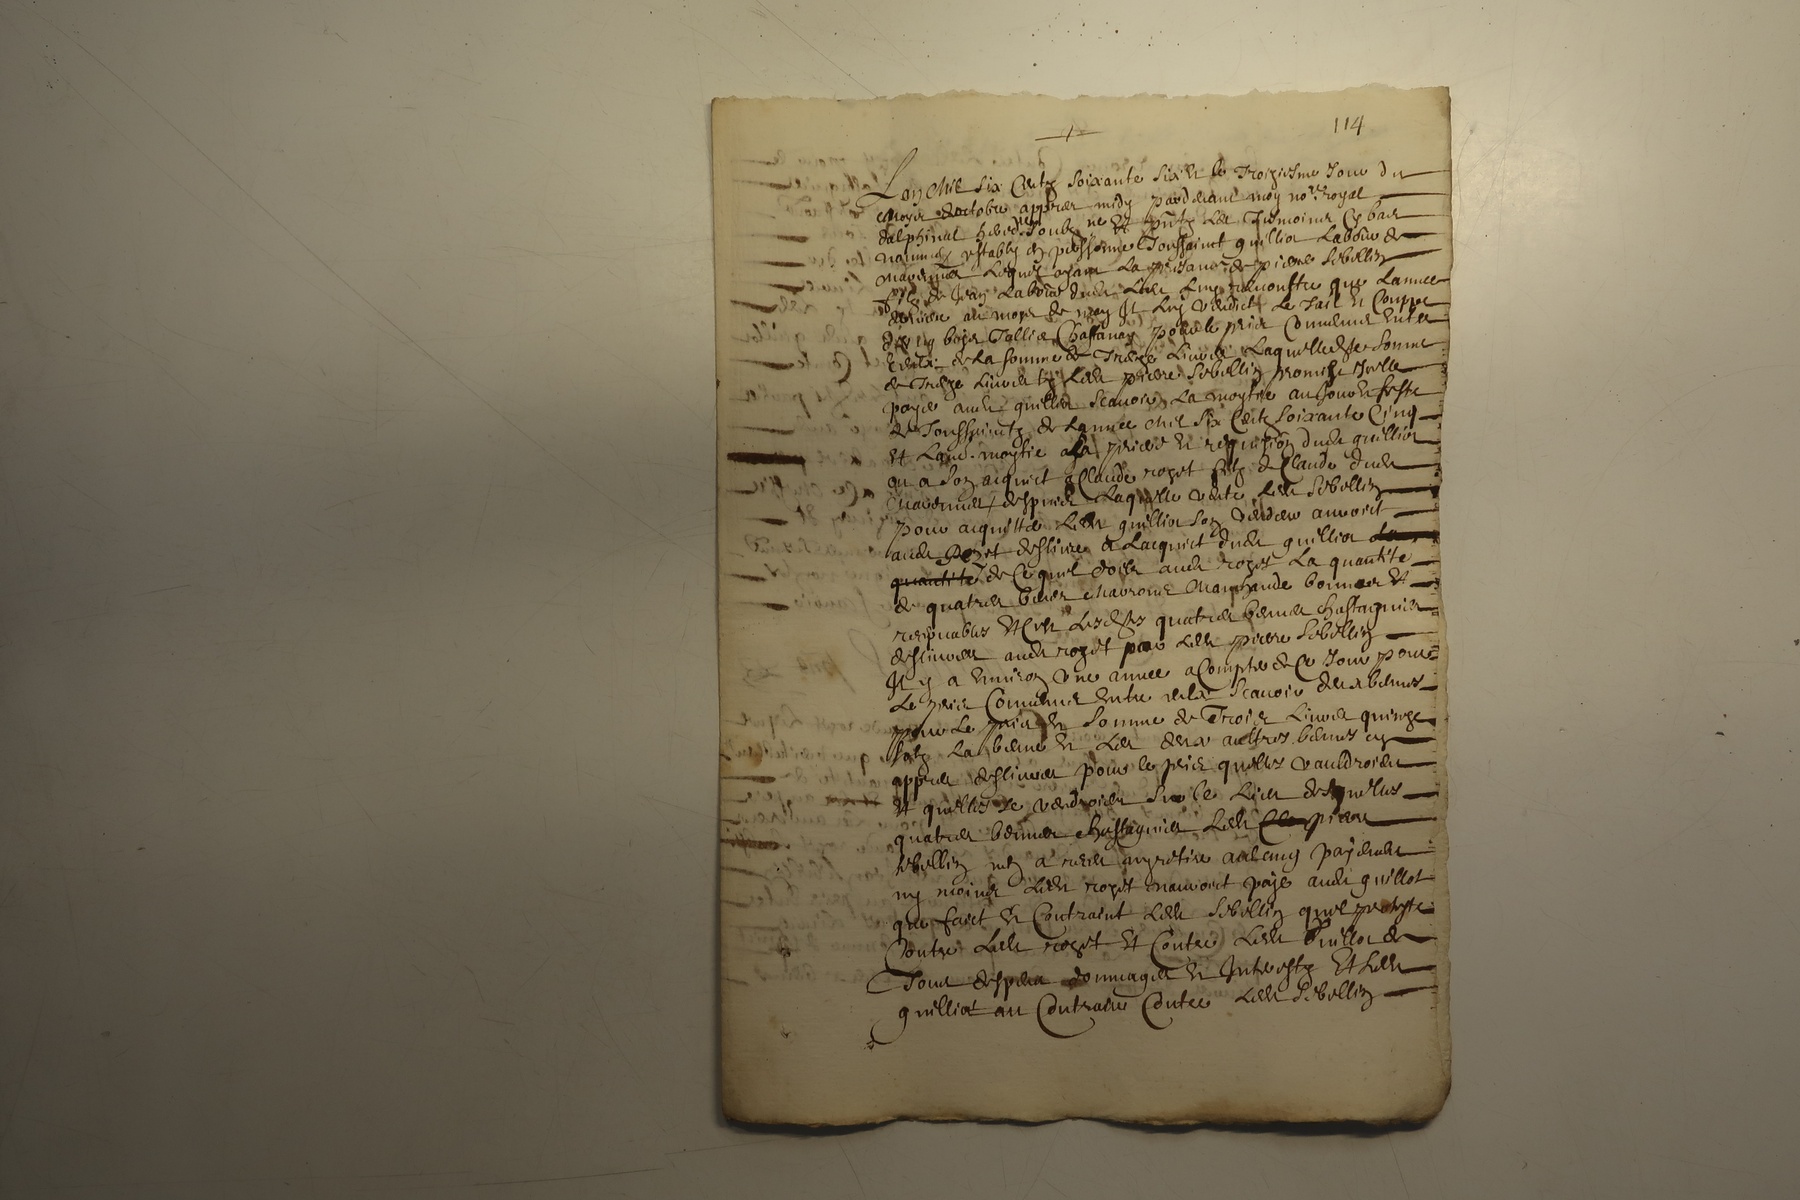 114
Lan Mil six Centz soixante six et le Troiziesme Jour du
moys doctobre appres midy pardevant moy no.re royal
dalphinal hered. soubz.né et pntz les Tesmoins Cy bas
nommés estably en personne Toussainct quilliot Labour de
lequel ayant La pierre sebellin
filz de Jean Labour dudit Lieu Luy remonstre que Lannee
derniere au moys de may Il Luy vendict Le Tail et Couppe
dun boys Tallis Chastanay pour le pris Convenu entre
eulx de La somme de Treze Livres Laquelle somme
de Treze Livres Ledit pierre sebellin promist Icelle
payer audit quilliot scavoir La moytie au Jour et feste
de Toussainctz de Lannee Mil six Centz soixante Cinq
et Laut. moytie a La priere et requision dudit quilliot
ou a son acquict a Claude rozet filz de Claude dudit
despuis Laquelle vente Ledit sebellin
pour acquitter Ledit quilliot son vendeur auroict
audit rozet deslivré a Lacquict dudit quilliot
quantité de Ce quil doibt audit rozet La quantité
de quatre bennes Marchande bonnes et
recepvables et quatre bennes chastagnier
deslivrees audit rozet par Ledit pierre sebellin
Il y a environ une annee a Compter de Ce Jour pour
Le pris Convenu entre eulx scavoir deux bennes
pour Le pris et somme de Trois Livres quinze
solz La benne et Les deux aultres bennes
appres deslivrees pour le pris quelles vauldroient
et quelles se vendroient sur le Lieu desquelles
quatre bennes chastagnier Ledit pierre
sebellin nen a rien retiré aulcung payement
ny moings Ledit rozet nauroict payé audit quillot
que faict et Contraint Ledit sebellin quil proteste
Contre Ledit rozet et Contre Ledit quilliot de
Tous despens dommages et Interestz Et Ledit
quilliot au Contraire Contre Ledit sebellin